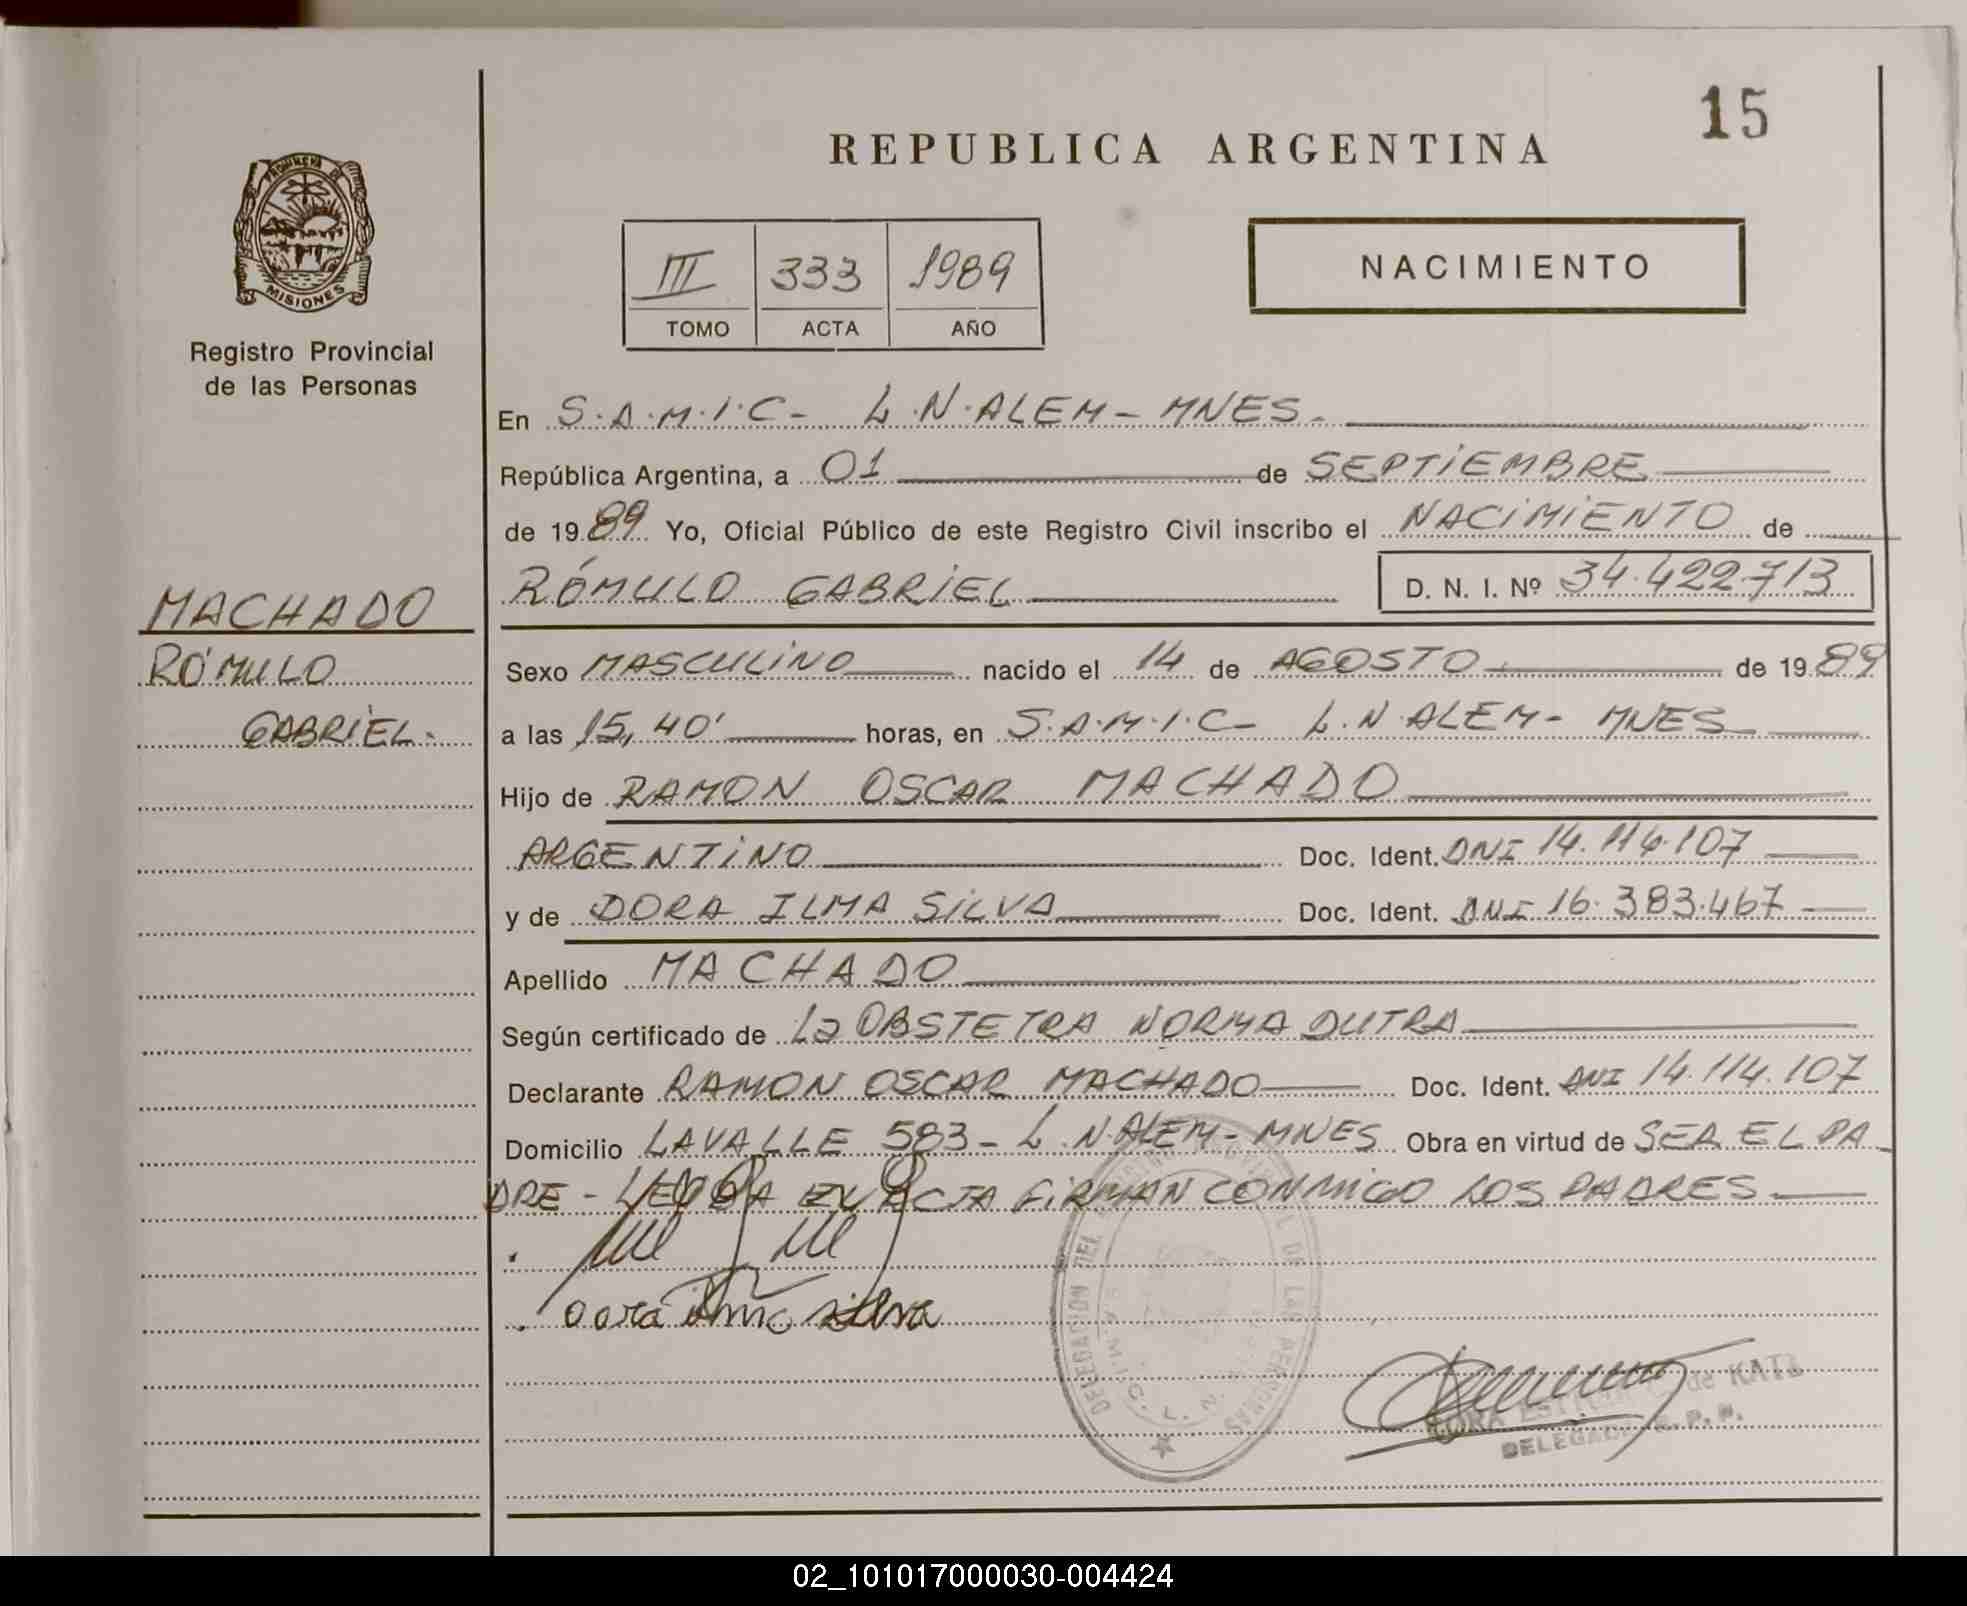 15
REPUBLICA ARGENTINA
PROVINCIA DE
MISIONES
Registro Provincial
de las Personas
III 333 1989
TOMO ACTA AÑO
NACIMIENTO
En S.A.M.I.C- L.N.ALEM- MNES-
República Argentina, a 01 de SEPTIEMBRE
de 1989 Yo, Oficial Público de este Registro Civil inscribo el NACIMIENTO de
RÓMULO GABRIEL D. N. I. Nº 34.422.713
MACHADO
RÓMULO
GABRIEL.
Sexo MASCULINO nacido el 14 de AGOSTO de 1989
a las 15,40' horas, en S.A.M.I.C- L.N.ALEM- MNES
Hijo de RAMON OSCAR MACHADO
ARGENTINO Doc. Ident. DNI 14.114.107
y de DORA ILMA SILVA Doc. Ident. DNI 16.383.467
Apellido MACHADO
Según certificado de La OBSTETRA NORMA DUTRA
Declarante RAMON OSCAR MACHADO Doc. Ident. DNI 14.114.107
Domicilio LAVALLE 583- L.N.ALEM- MNES Obra en virtud de SER EL PA
DRE - LEIDA EN ACTA FIRMAN CONMIGO LOS PADRES
DELEGACION DEL REGISTRO PROVINCIAL DE LAS PERSONAS
S.A.M.I.C. L. N.
Dora Ilma Silva
de KATZ
DELEGADA R. P. P.
02_101017000030-004424